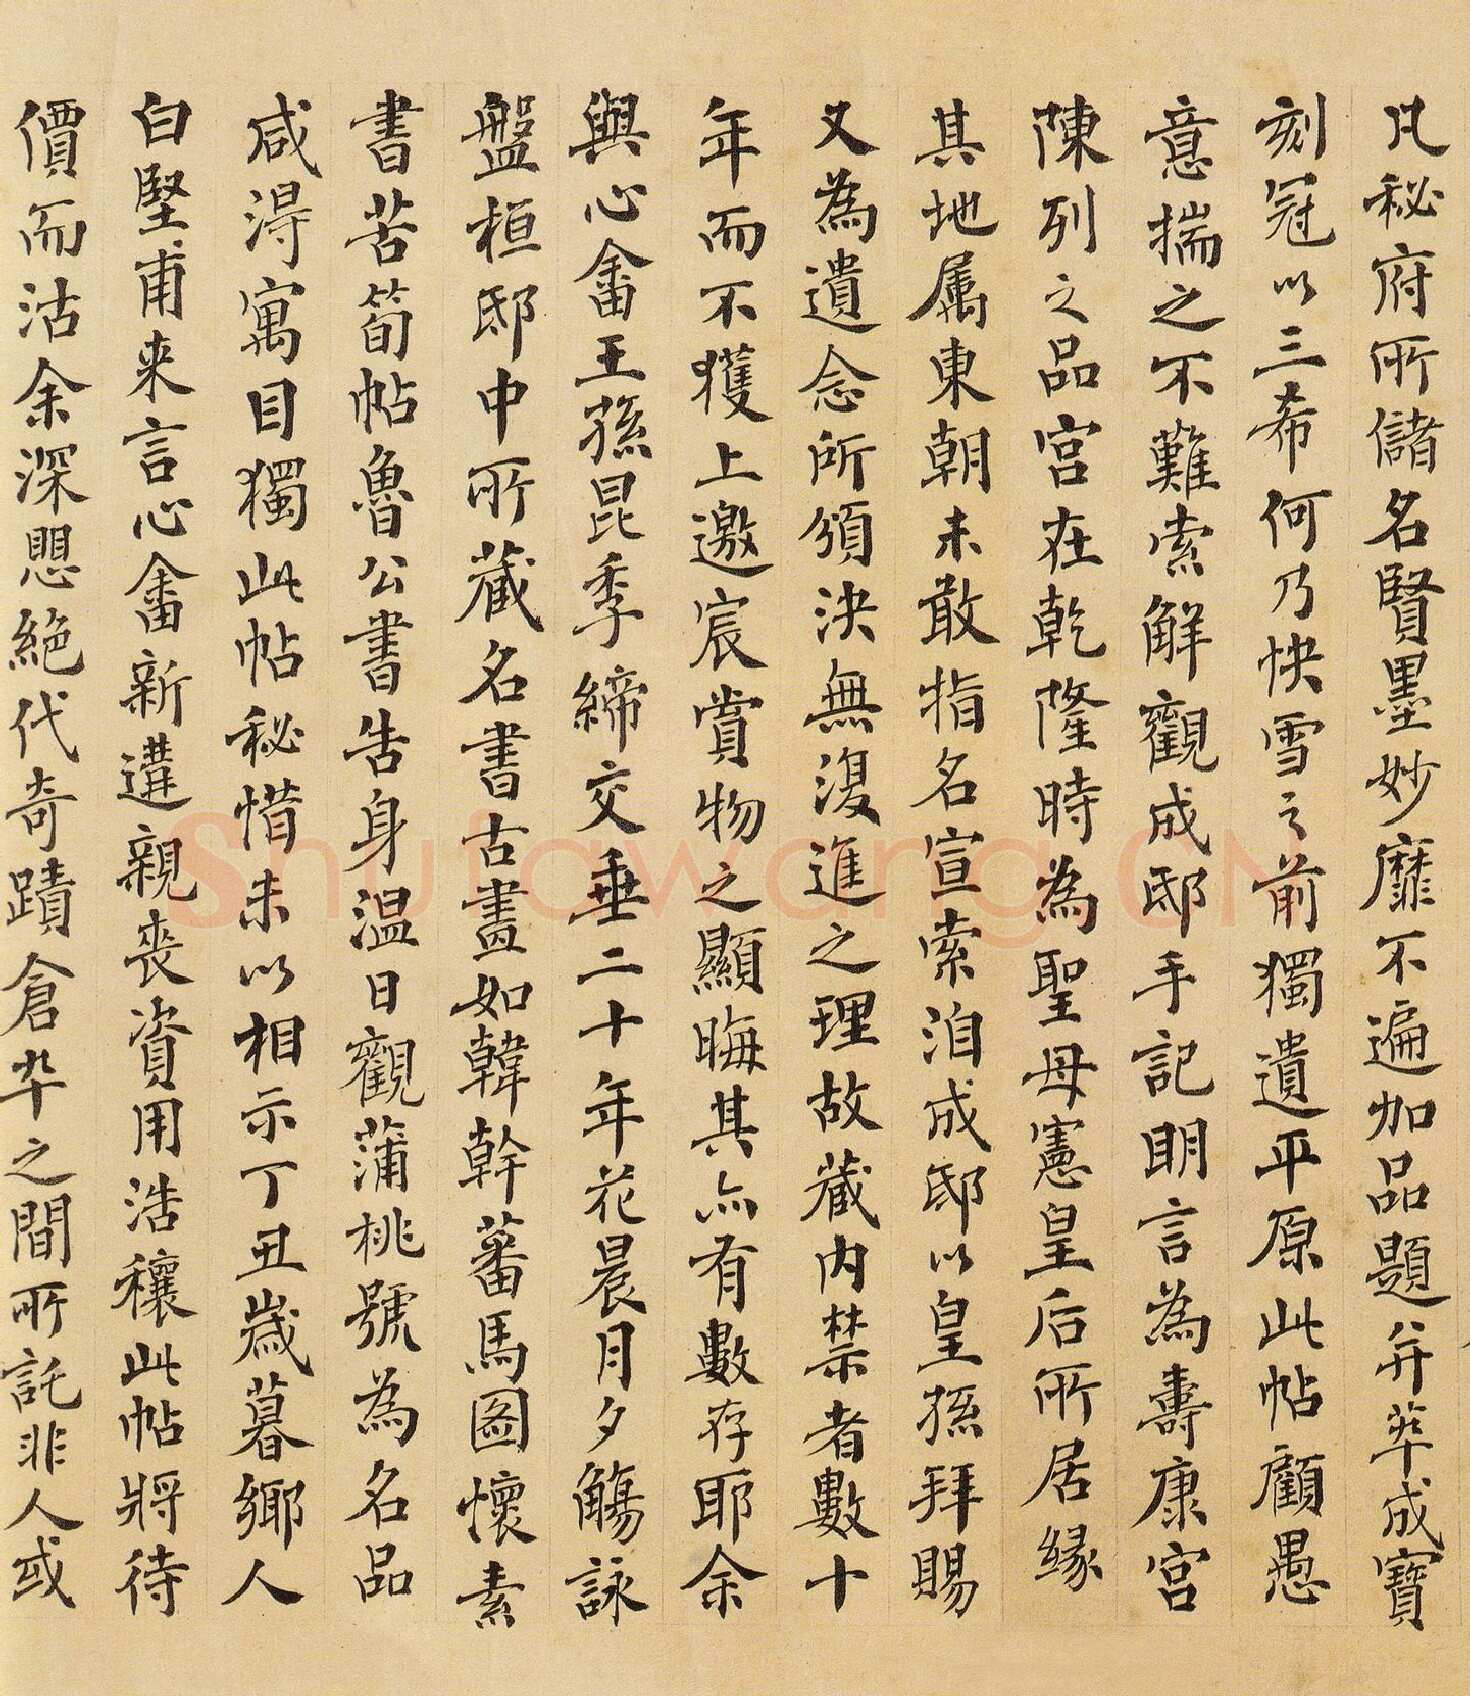 凡秘府所儲名賢墨妙靡不遍加品題并萃成寶
刻冠以三希何乃快雪之前獨遺平原此帖顧愚
意揣之不難索解觀成邸手記明言為壽康宮
陳列之品宮在乾隆時為聖母憲皇后所居緣
其地屬東朝未敢指名宣索洎成邸以皇孫拜賜
又為遺念所頒決無復進之理故藏內禁者數十
年而不獲上邀宸賞物之顯晦其亦有數存耶余
與心畬王孫昆季締交垂二十年花晨月夕觴詠
盤桓邸中所藏名書古畫如韓幹蕃馬圖懷素
書苦筍帖魯公書告身溫日觀蒲桃號為名品
咸得寓目獨此帖秘惜未以相示丁丑歲暮鄉人
白堅甫来言心畬新遘親喪資用浩穰此帖將待
價而沽余深恐絕代奇蹟倉卒之間所託非人或
Shufawang.CN